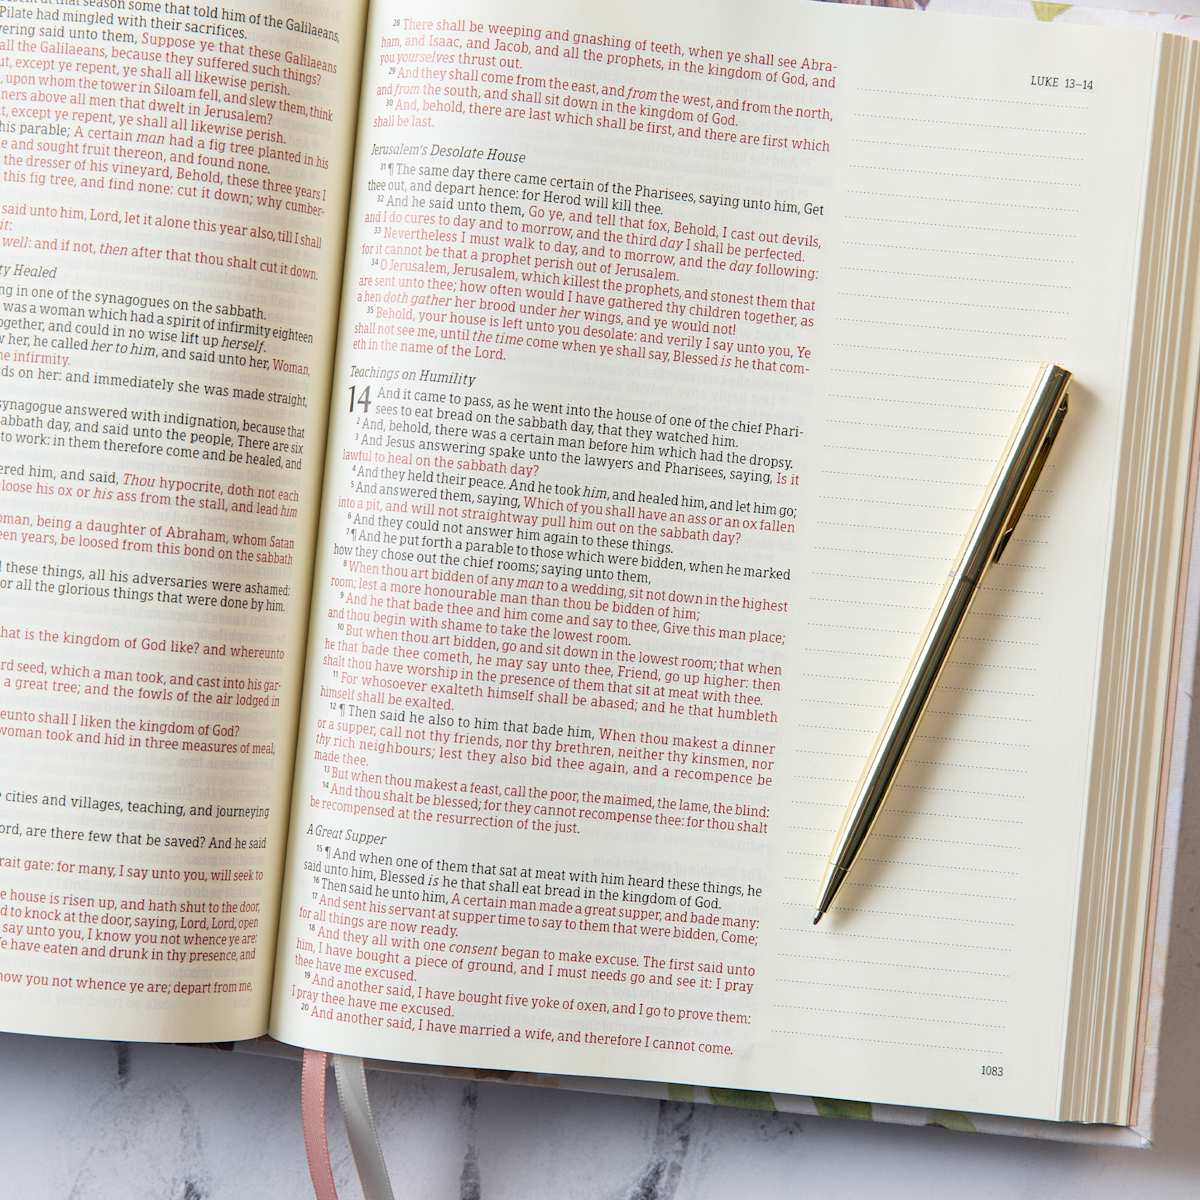 at that season some that told him of the Galilaeans,
Pilate had mingled with their sacrifices.
ering said unto them, Suppose ye that these Galilaeans
all the Galilaeans, because they suffered such things?
ut, except ye repent, ye shall all likewise perish.
, upon whom the tower in Siloam fell, and slew them, think
ners above all men that dwelt in Jerusalem?
t, except ye repent, ye shall all likewise perish.
his parable; A certain man had a fig tree planted in his
e and sought fruit thereon, and found none.
the dresser of his vineyard, Behold, these three years I
this fig tree, and find none: cut it down; why cumber-
said unto him, Lord, let it alone this year also, till I shall
it:
well: and if not, then after that thou shalt cut it down.
ty Healed
ng in one of the synagogues on the sabbath.
was a woman which had a spirit of infirmity eighteen
ogether, and could in no wise lift up herself.
w her, he called her to him, and said unto her, Woman,
ne infirmity.
ds on her: and immediately she was made straight,
synagogue answered with indignation, because that
abbath day, and said unto the people, There are six
to work: in them therefore come and be healed, and
ered him, and said, Thou hypocrite, doth not each
loose his ox or his ass from the stall, and lead him
oman, being a daughter of Abraham, whom Satan
een years, be loosed from this bond on the sabbath
these things, all his adversaries were ashamed:
or all the glorious things that were done by him.
hat is the kingdom of God like? and whereunto
rd seed, which a man took, and cast into his gar-
a great tree; and the fowls of the air lodged in
eunto shall I liken the kingdom of God?
woman took and hid in three measures of meal,
cities and villages, teaching, and journeying
ord, are there few that be saved? And he said
rait gate: for many, I say unto you, will seek to
e house is risen up, and hath shut to the door,
d to knock at the door, saying, Lord, Lord, open
say unto you, I know you not whence ye are:
e have eaten and drunk in thy presence, and
now you not whence ye are; depart from me,
LUKE 13–14
28 There shall be weeping and gnashing of teeth, when ye shall see Abra-
ham, and Isaac, and Jacob, and all the prophets, in the kingdom of God, and
you yourselves thrust out.
29 And they shall come from the east, and from the west, and from the north,
and from the south, and shall sit down in the kingdom of God.
30 And, behold, there are last which shall be first, and there are first which
shall be last.
Jerusalem's Desolate House
31 ¶ The same day there came certain of the Pharisees, saying unto him, Get
thee out, and depart hence: for Herod will kill thee.
32 And he said unto them, Go ye, and tell that fox, Behold, I cast out devils,
and I do cures to day and to morrow, and the third day I shall be perfected.
33 Nevertheless I must walk to day, and to morrow, and the day following:
for it cannot be that a prophet perish out of Jerusalem.
34 O Jerusalem, Jerusalem, which killest the prophets, and stonest them that
are sent unto thee; how often would I have gathered thy children together, as
a hen doth gather her brood under her wings, and ye would not!
35 Behold, your house is left unto you desolate: and verily I say unto you, Ye
shall not see me, until the time come when ye shall say, Blessed is he that com-
eth in the name of the Lord.
Teachings on Humility
14 And it came to pass, as he went into the house of one of the chief Phari-
sees to eat bread on the sabbath day, that they watched him.
2 And, behold, there was a certain man before him which had the dropsy.
3 And Jesus answering spake unto the lawyers and Pharisees, saying, Is it
lawful to heal on the sabbath day?
4 And they held their peace. And he took him, and healed him, and let him go;
5 And answered them, saying, Which of you shall have an ass or an ox fallen
into a pit, and will not straightway pull him out on the sabbath day?
6 And they could not answer him again to these things.
7 ¶ And he put forth a parable to those which were bidden, when he marked
how they chose out the chief rooms; saying unto them,
8 When thou art bidden of any man to a wedding, sit not down in the highest
room; lest a more honourable man than thou be bidden of him;
9 And he that bade thee and him come and say to thee, Give this man place;
and thou begin with shame to take the lowest room.
10 But when thou art bidden, go and sit down in the lowest room; that when
he that bade thee cometh, he may say unto thee, Friend, go up higher: then
shalt thou have worship in the presence of them that sit at meat with thee.
11 For whosoever exalteth himself shall be abased; and he that humbleth
himself shall be exalted.
12 ¶ Then said he also to him that bade him, When thou makest a dinner
or a supper, call not thy friends, nor thy brethren, neither thy kinsmen, nor
thy rich neighbours; lest they also bid thee again, and a recompence be
made thee.
13 But when thou makest a feast, call the poor, the maimed, the lame, the blind:
14 And thou shalt be blessed; for they cannot recompense thee: for thou shalt
be recompensed at the resurrection of the just.
A Great Supper
15 ¶ And when one of them that sat at meat with him heard these things, he
said unto him, Blessed is he that shall eat bread in the kingdom of God.
16 Then said he unto him, A certain man made a great supper, and bade many:
17 And sent his servant at supper time to say to them that were bidden, Come;
for all things are now ready.
18 And they all with one consent began to make excuse. The first said unto
him, I have bought a piece of ground, and I must needs go and see it: I pray
thee have me excused.
19 And another said, I have bought five yoke of oxen, and I go to prove them:
I pray thee have me excused.
20 And another said, I have married a wife, and therefore I cannot come.
1083